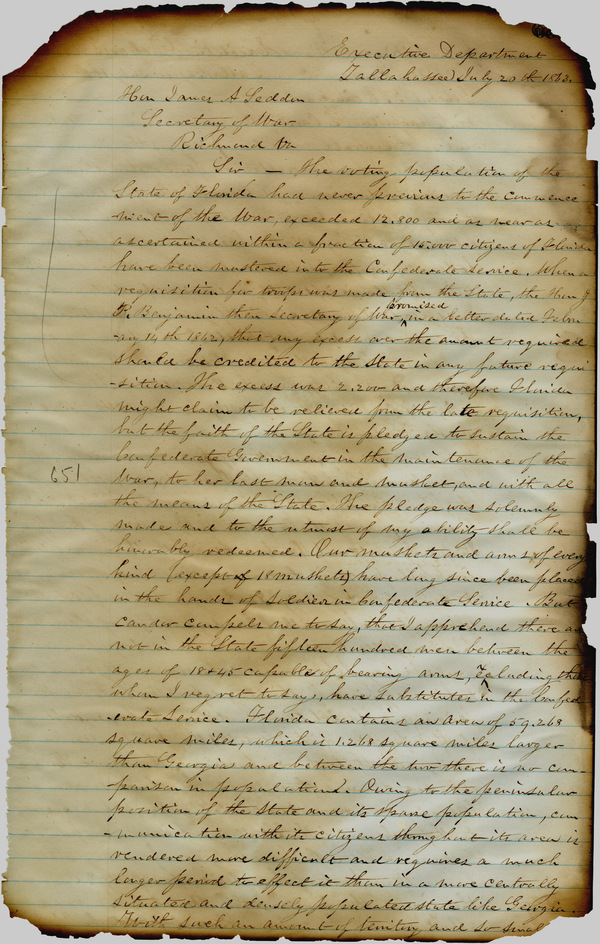 Executive Department
Tallahassee July 20th 1863.
Hon James A Seddon
Secretary of War
Richmond Va
Sir — The voting population of the
State of Florida had never previous to the commence
-ment of the War, exceeded 12.800 and as near as
ascertained within a fraction of 15.000 citizens of Florida
have been mustered into the Confederate Service. When a
requisition for troops was made from the State, the Hon J
P. Benjamin then Secretary of War, promised in a letter dated Febru
ary 14th 1862, that any excess over the amount required
should be credited to the State in any future requi
-sition. The excess was 2.200 and therefore Florida
might claim to be relieved from the late requisition,
but the faith of the State is pledged to sustain the
Confederate Government in the maintenance of the
651
War, to her last man and musket, and with all
the means of the State. The pledge was solemnly
made and to the utmost of my ability shall be
honorably redeemed. Our muskets and arms of every
kind (except of 18 muskets) have long since been placed
in the hands of soldiers in Confederate Service. But
candor compels me to say, that I apprehend there are
not in the State fifteen hundred men between the
ages of 18 & 45 capable of bearing arms, excluding those
whom I regret to say, have substitutes in the Confed
-erate Service. Florida contains an area of 59.268
square miles, which is 1.268 square miles larger
than Georgia and between the two there is no com-
-parison in population. Owing to the peninsular
position of the State and its sparse population, com
-munication with its citizens throughout its area is
rendered more difficult and requires a much
longer period to effect it than in a more centrally
situated and densely populated state like Georgia.
With such an amount of territory and so small